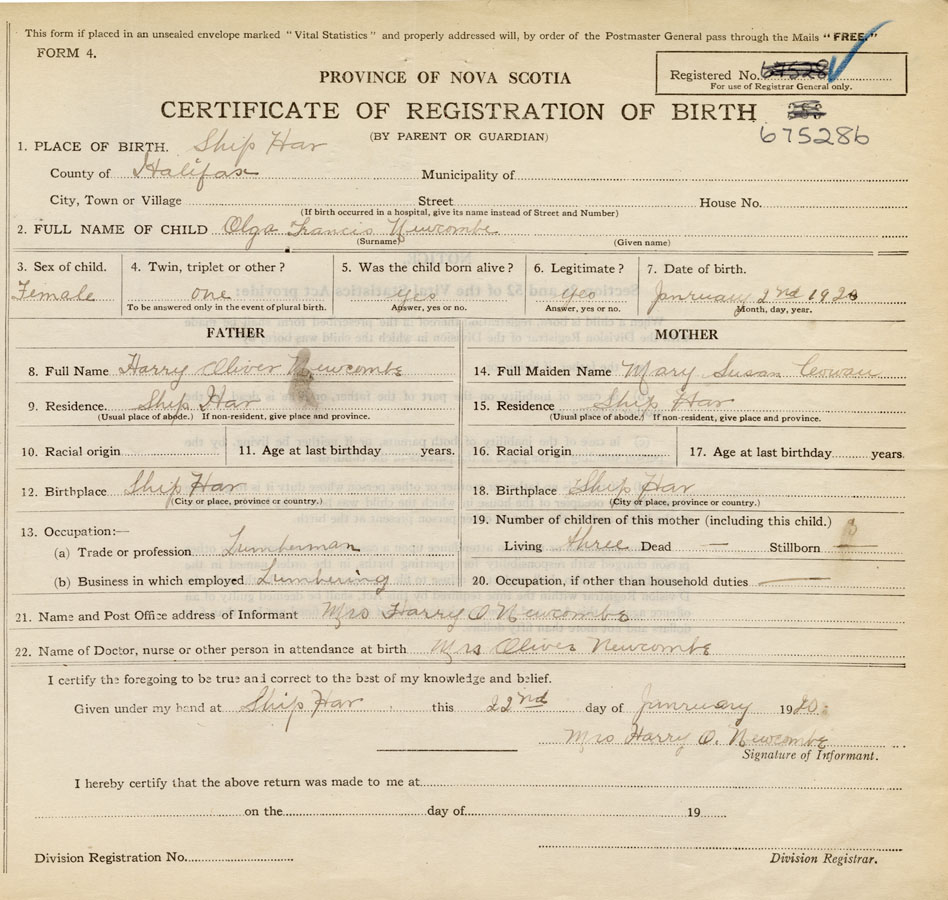 This form if placed in an unsealed envelope marked "Vital Statistics" and properly addressed will, by order of the Postmaster General pass through the Mails "FREE."
FORM 4.
PROVINCE OF NOVA SCOTIA
Registered No. 67528
For use of Registrar General only.
CERTIFICATE OF REGISTRATION OF BIRTH
(BY PARENT OR GUARDIAN)
675286
1. PLACE OF BIRTH. Ship Har
County of Halifax Municipality of
City, Town or Village Street House No.
(If birth occurred in a hospital, give its name instead of Street and Number)
2. FULL NAME OF CHILD Olga Francis Newcombe
(Surname) (Given name)
3. Sex of child. 4. Twin, triplet or other? 5. Was the child born alive? 6. Legitimate? 7. Date of birth.
Female one yes yes Janruary 2nd 1920
To be answered only in the event of plural birth. Answer, yes or no. Answer, yes or no. Month, day, year.
FATHER MOTHER
8. Full Name Harry Oliver Newcombe 14. Full Maiden Name Mary Susan Cowan
9. Residence. Ship Har 15. Residence Ship Har
(Usual place of abode.) If non-resident, give place and province. (Usual place of abode.) If non-resident, give place and province.
10. Racial origin 11. Age at last birthday years. 16. Racial origin 17. Age at last birthday years.
12. Birthplace Ship Har 18. Birthplace Ship Har
(City or place, province or country.) (City or place, province or country.)
13. Occupation:— 19. Number of children of this mother (including this child.)
(a) Trade or profession Lumberman Living three Dead — Stillborn —
(b) Business in which employed Lumbering 20. Occupation, if other than household duties —
21. Name and Post Office address of Informant Mrs Harry O Newcombe
22. Name of Doctor, nurse or other person in attendance at birth Mrs Oliver Newcombe
I certify the foregoing to be true and correct to the best of my knowledge and belief.
Given under my hand at Ship Har this 22nd day of Janruary 1920.
Mrs Harry O. Newcombe
Signature of Informant.
I hereby certify that the above return was made to me at
on the day of 19
Division Registration No.
Division Registrar.